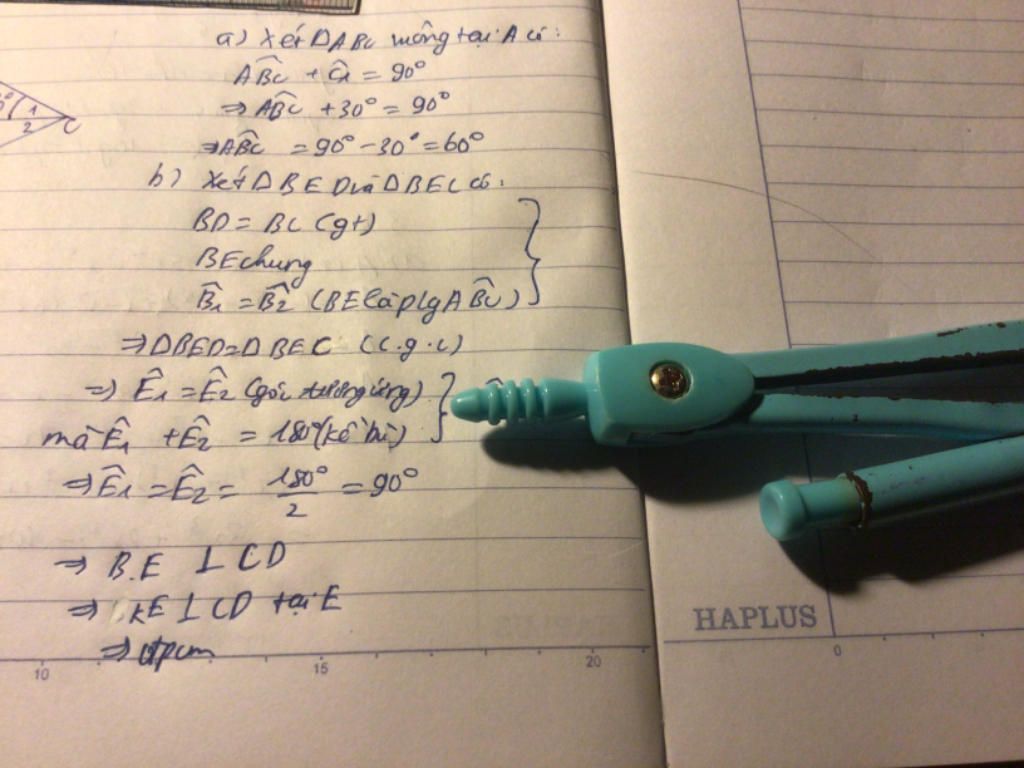 a) Xét ΔABC vuông tại A có:
ABĈ + Ĉ1 = 90°
⇒ ABĈ + 30° = 90°
⇒ ABĈ = 90° - 30° = 60°
b) Xét ΔBED và ΔBEC có:
BD = BC (gt)
BE chung
B̂1 = B̂2 (BE là p/g ABĈ)
⇒ ΔBED = ΔBEC (c.g.c)
⇒ Ê1 = Ê2 (góc tương ứng)
mà Ê1 + Ê2 = 180° (kề bù)
⇒ Ê1 = Ê2 = 180°/2 = 90°
⇒ BE ⊥ CD
⇒ KE ⊥ CD tại E
⇒ đpcm
1
2
C
HAPLUS
10 15 20 0